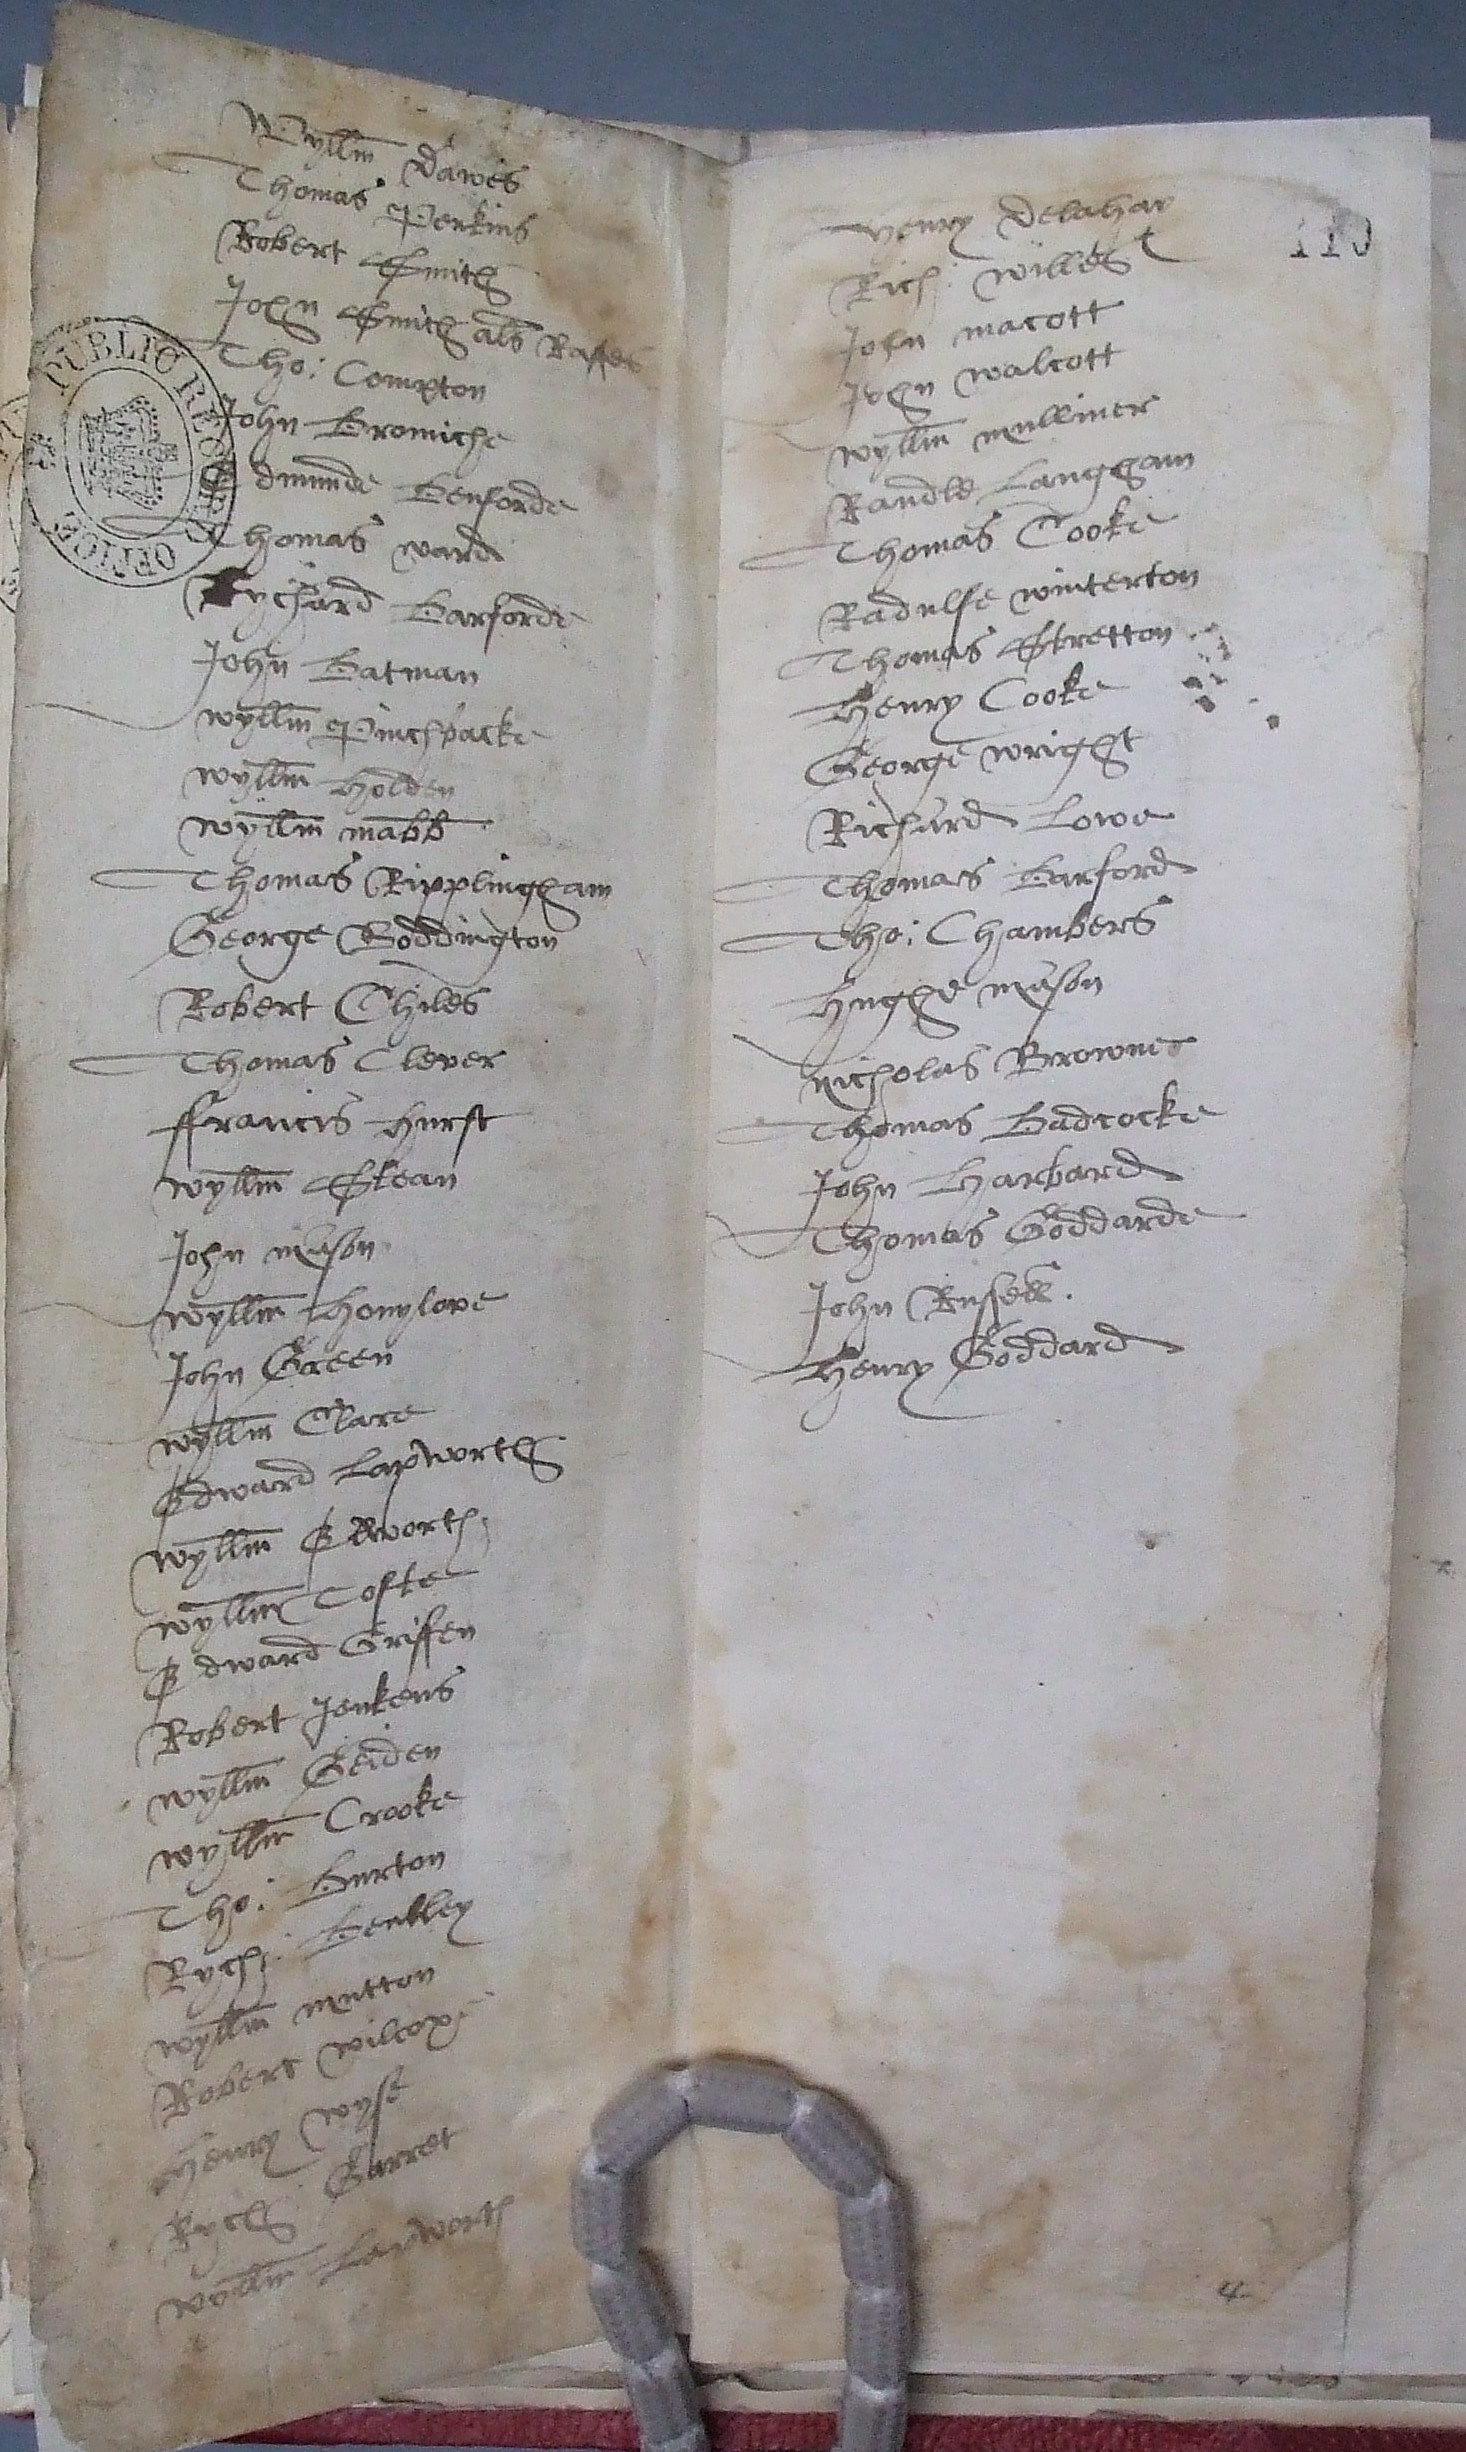 Wyllm Dawes
Thomas Perkins
Robert Smith
John Smith als Raffes
Tho: Compton
John Bromiche
Edmunde Benforde
Thomas ward
Rychard Barforde
John Batman
wyllm Pinchbacke
wyllm Holden
wyllm mabb
Thomas Ripplingham
George Boddington
Robert Chiles
Thomas Clever
ffrancis Hurst
wyllm Skean
John mason
wyllm Honylove
John Green
wyllm Clare
Edward Lapworth
wyllm Elworth
wyllm Tofte
Edward Griffen
Robert Jenkens
wyllm Geiden
wyllm Crooke
Tho: Burton
Rych: Bentley
wyllm mutton
Robert wilcoxe
Henry wyse
Rych Garret
wyllm Lapworth
PUBLIC RECORD OFFICE
110
Henry Delahay
Rich: willes
John macott
John walcott
wyllm mulliner
Randle Langham
Thomas Cooke
Radulfe winterton
Thomas Stretton
Henry Cooke
George wright
Richard Lowe
Thomas Barford
Tho: Chambers
Hughe mason
nicholas Browne
Thomas Badcocke
John Harbard
Thomas Goddarde
John Russell.
Henry Goddard
4